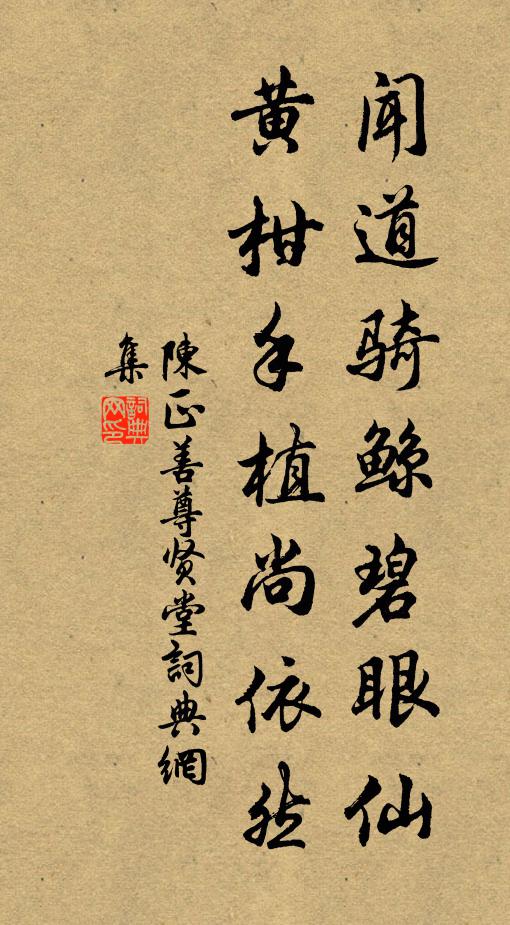 闻道骑鲸碧眼仙
黄柑手植尚依然
陳正善尊贤堂詞典網
集
詞典网印